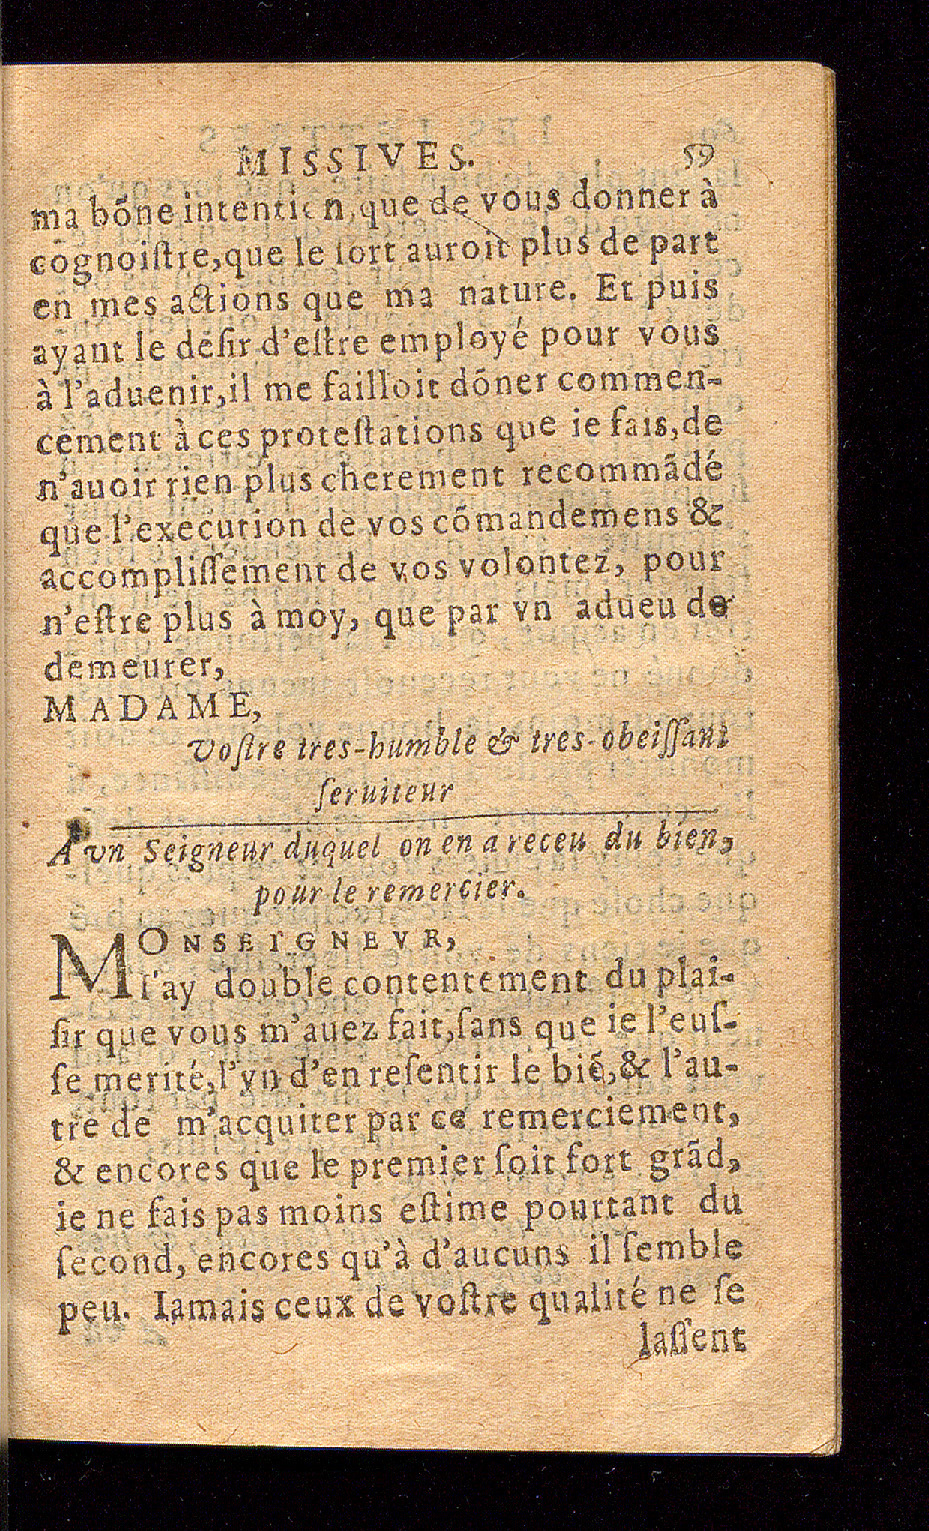 MISSIVES. 59
ma bõne intention, que de vous donner à
cognoiſtre, que le ſort auroit plus de part
en mes actions que ma nature. Et puis
ayant le deſir d'eſtre employé pour vous
à l'aduenir, il me failloit dõner commen-
cement à ces proteſtations que ie fais, de
n'auoir rien plus cherement recommãdé
que l'execution de vos cõmandemens &
accompliſſement de vos volontez, pour
n'eſtre plus à moy, que par vn adueu de
demeurer,
MADAME,
Voſtre tres-humble & tres-obeiſſant
ſeruiteur
A vn Seigneur duquel on en a receu du bien,
pour le remercier.
MONSEIGNEVR,
I'ay double contentement du plai-
ſir que vous m'auez fait, ſans que ie l'euſ-
ſe merité, l'vn d'en reſentir le biẽ, & l'au-
tre de m'acquiter par ce remerciement,
& encores que le premier ſoit fort grãd,
ie ne fais pas moins eſtime pourtant du
ſecond, encores qu'à d'aucuns il ſemble
peu. Iamais ceux de voſtre qualité ne ſe
laſſent